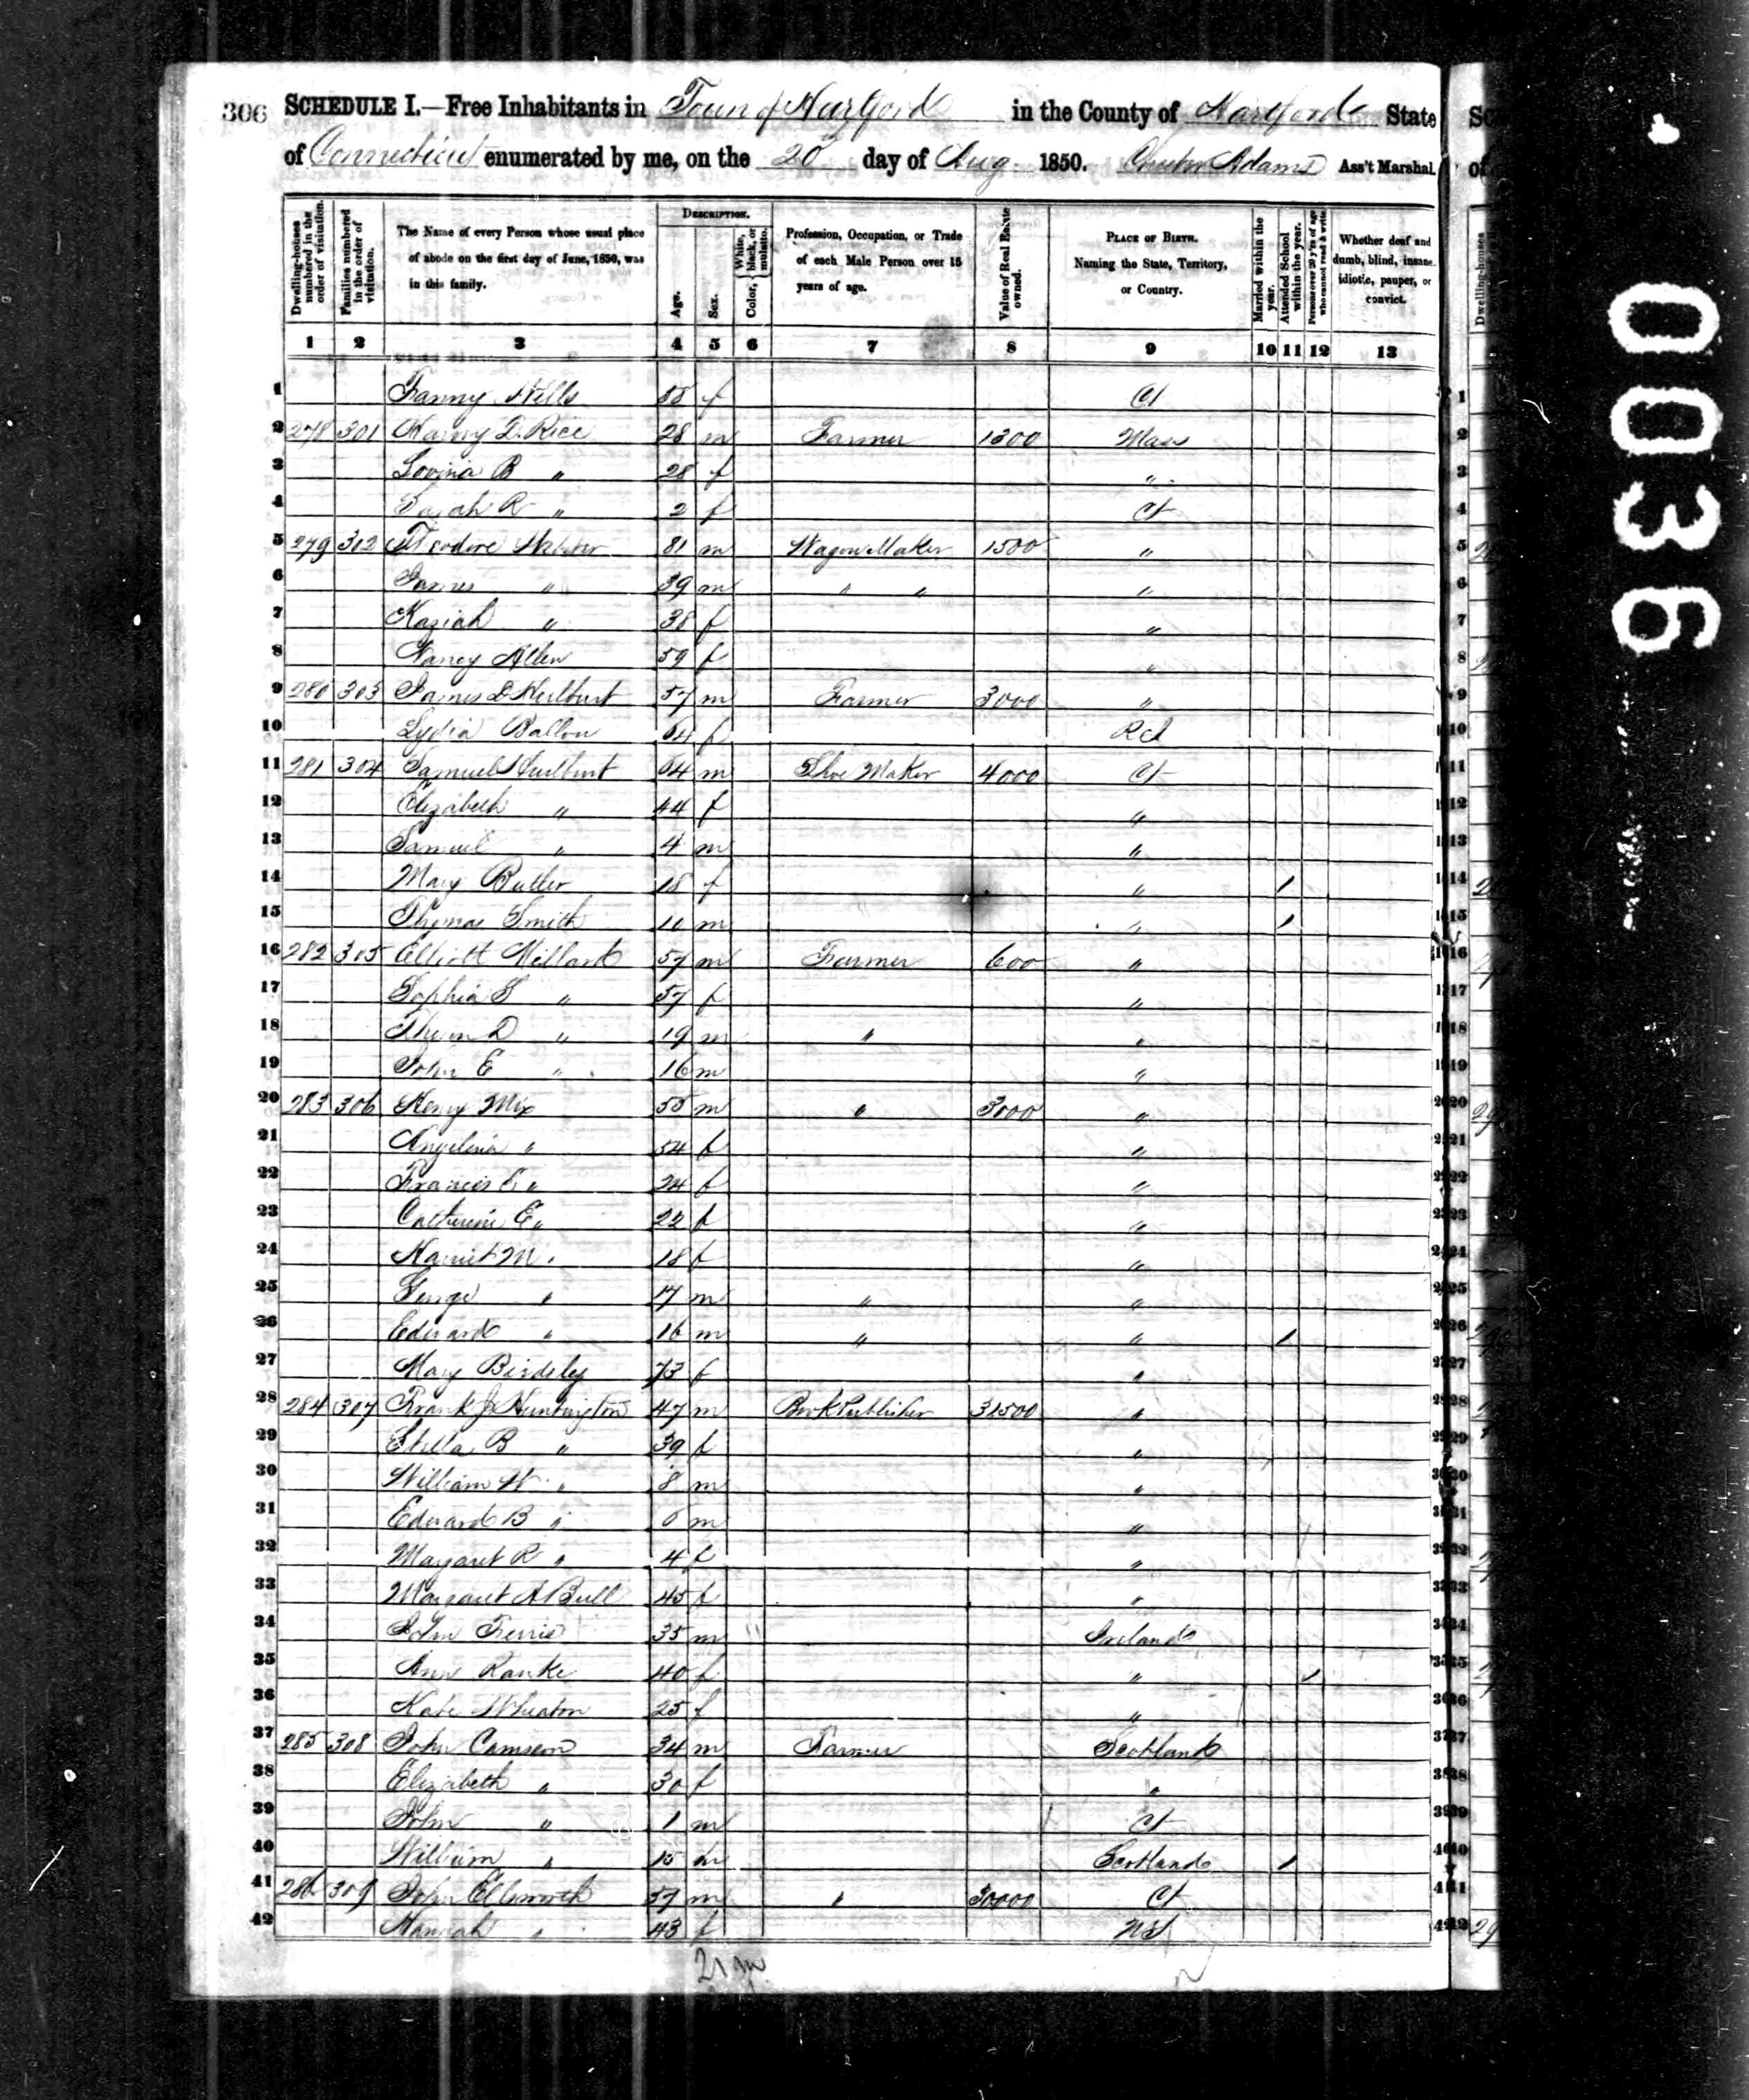 306 SCHEDULE I.—Free Inhabitants in Town of Hartford in the County of Hartford State
of Connecticut enumerated by me, on the 20 day of Aug. 1850. Adams Ass't Marshal.
Dwelling-houses numbered in the order of visitation.
Families numbered in the order of visitation.
The Name of every Person whose usual place of abode on the first day of June, 1850, was in this family.
DESCRIPTION.
Age.
Sex.
Color, White, black, or mulatto.
Profession, Occupation, or Trade of each Male Person over 15 years of age.
Value of Real Estate owned.
PLACE OF BIRTH. Naming the State, Territory, or Country.
Married within the year.
Attended School within the year.
Persons over 20 y'rs of age who cannot read & write.
Whether deaf and dumb, blind, insane, idiotic, pauper, or convict.
1 2 3 4 5 6 7 8 9 10 11 12 13
1 Fanny Wells 58 f Ct
2 278 301 Harvy D. Rice 28 m Farmer 1300 Mass
3 Lovina B " 28 f "
4 Sarah R " 2 f Ct
5 279 302 Webster 81 m Wagon Maker 1500 "
6 James " 39 m " " "
7 Kaziah " 38 f "
8 Nancy Allen 59 f "
9 280 303 James D Hurlburt 57 m Farmer 3000 "
10 Lydia Ballou 64 f
11 281 304 Samuel Hurlburt 64 m Shoe Maker 4000 Ct
12 Elizabeth " 44 f "
13 Samuel " 4 m "
14 Mary Butler 18 f " /
15 Thomas Smith 10 m " /
16 282 305 Elliott Millard 57 m Farmer 600 "
17 Sophia S " 57 f "
18 D " 19 m " "
19 John E " 16 m "
20 283 306 Henry Mix 55 m " 3000 "
21 Angelina " 54 f "
22 Frances E " 24 f "
23 Catherine E " 22 f "
24 Harriet M " 18 f "
25 George " 17 m " "
26 Edward " 16 m " " /
27 Mary Birdsley 73 f "
28 284 307 Frank J Huntington 47 m Book Publisher 31500 "
29 Stella B " 39 f "
30 William W " 8 m "
31 Edward B " 6 m "
32 Margaret R " 4 f "
33 Margaret A Bull 45 f "
34 John Ferris 35 m Ireland
35 Ann Ranke 40 f " /
36 Kate Wheaton 25 f "
37 285 308 John Camseon 34 m Farmer Scotland
38 Elizabeth " 30 f "
39 John " 1 m Ct
40 William " 15 m Scotland /
41 286 309 John Ellsworth 57 m " 30000 Ct
42 Hannah " 43 f
21 m
0036